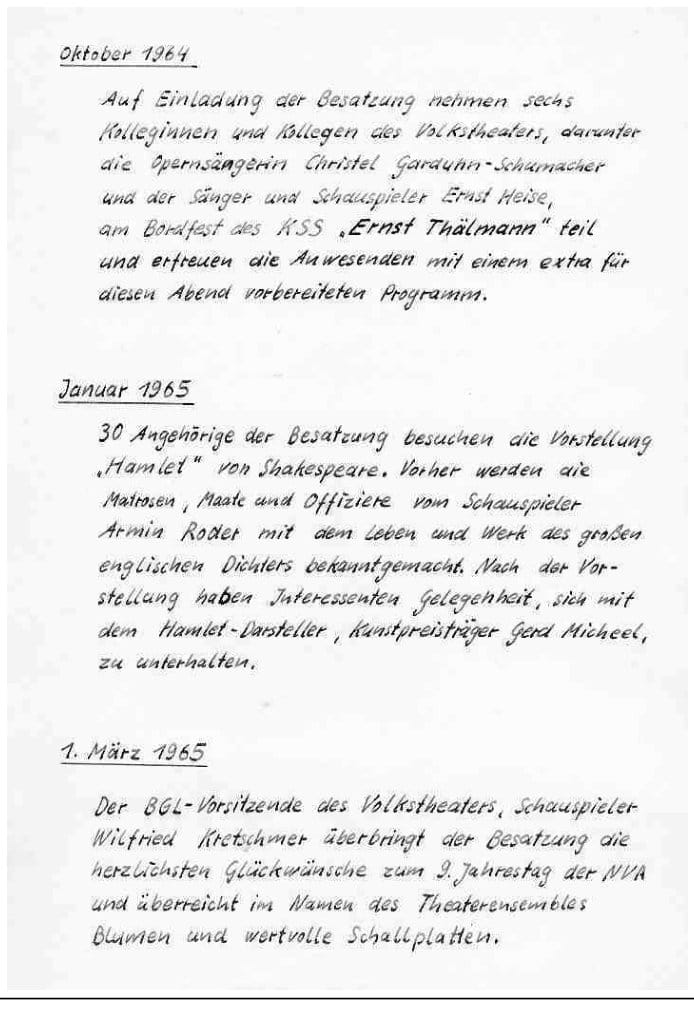 Oktober 1964
Auf Einladung der Besatzung nehmen sechs
Kolleginnen und Kollegen des Volkstheaters, darunter
die Opernsängerin Christel Garduhn-Schumacher
und der Sänger und Schauspieler Ernst Heise,
am Bordfest des KSS „Ernst Thälmann“ teil
und erfreuen die Anwesenden mit einem extra für
diesen Abend vorbereiteten Programm.
Januar 1965
30 Angehörige der Besatzung besuchen die Vorstellung
„Hamlet“ von Shakespeare. Vorher werden die
Matrosen, Maate und Offiziere vom Schauspieler
Armin Roder mit dem Leben und Werk des großen
englischen Dichters bekanntgemacht. Nach der Vor-
stellung haben Interessenten Gelegenheit, sich mit
dem Hamlet-Darsteller, Kunstpreisträger Gerd Micheel,
zu unterhalten.
1. März 1965
Der BGL-Vorsitzende des Volkstheaters, Schauspieler
Wilfried Kretschmer überbringt der Besatzung die
herzlichsten Glückwünsche zum 9. Jahrestag der NVA
und überreicht im Namen des Theaterensembles
Blumen und wertvolle Schallplatten.